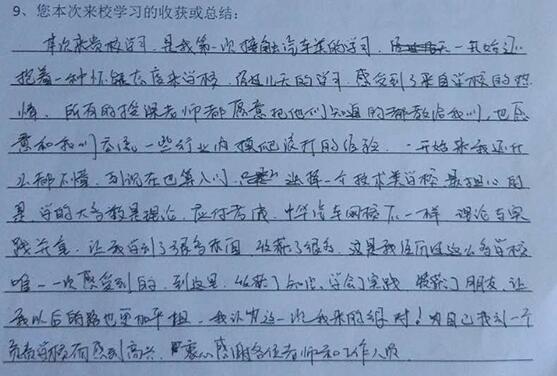 9、您本次来校学习的收获或总结：
本次来贵校学习，是我第一次接触汽车类的学习，一开始还
抱着一种怀疑态度来学校，经过几天的学习，感受到了来自学校的热
情，所有的授课老师都愿意把他们知道的都教给我们，也愿
意和我们交流一些行业内摸爬滚打的经验，一开始来我还什
么都不懂，到现在也算入门，选择一个技术类学校最担心的
是学的大多数是理论，应付考试，中华汽车网校不一样，理论与实
践并重，让我学到了很多东西，收获了很多，这是我经历过这么多学校
唯一一次感受到的，到这里，收获了知识，学会了实践，收获了朋友，让
我以后的路也更加平坦，我认为这一次我来的很对！为自己找到一个
学校而感到高兴，衷心感谢各位老师和工作人员